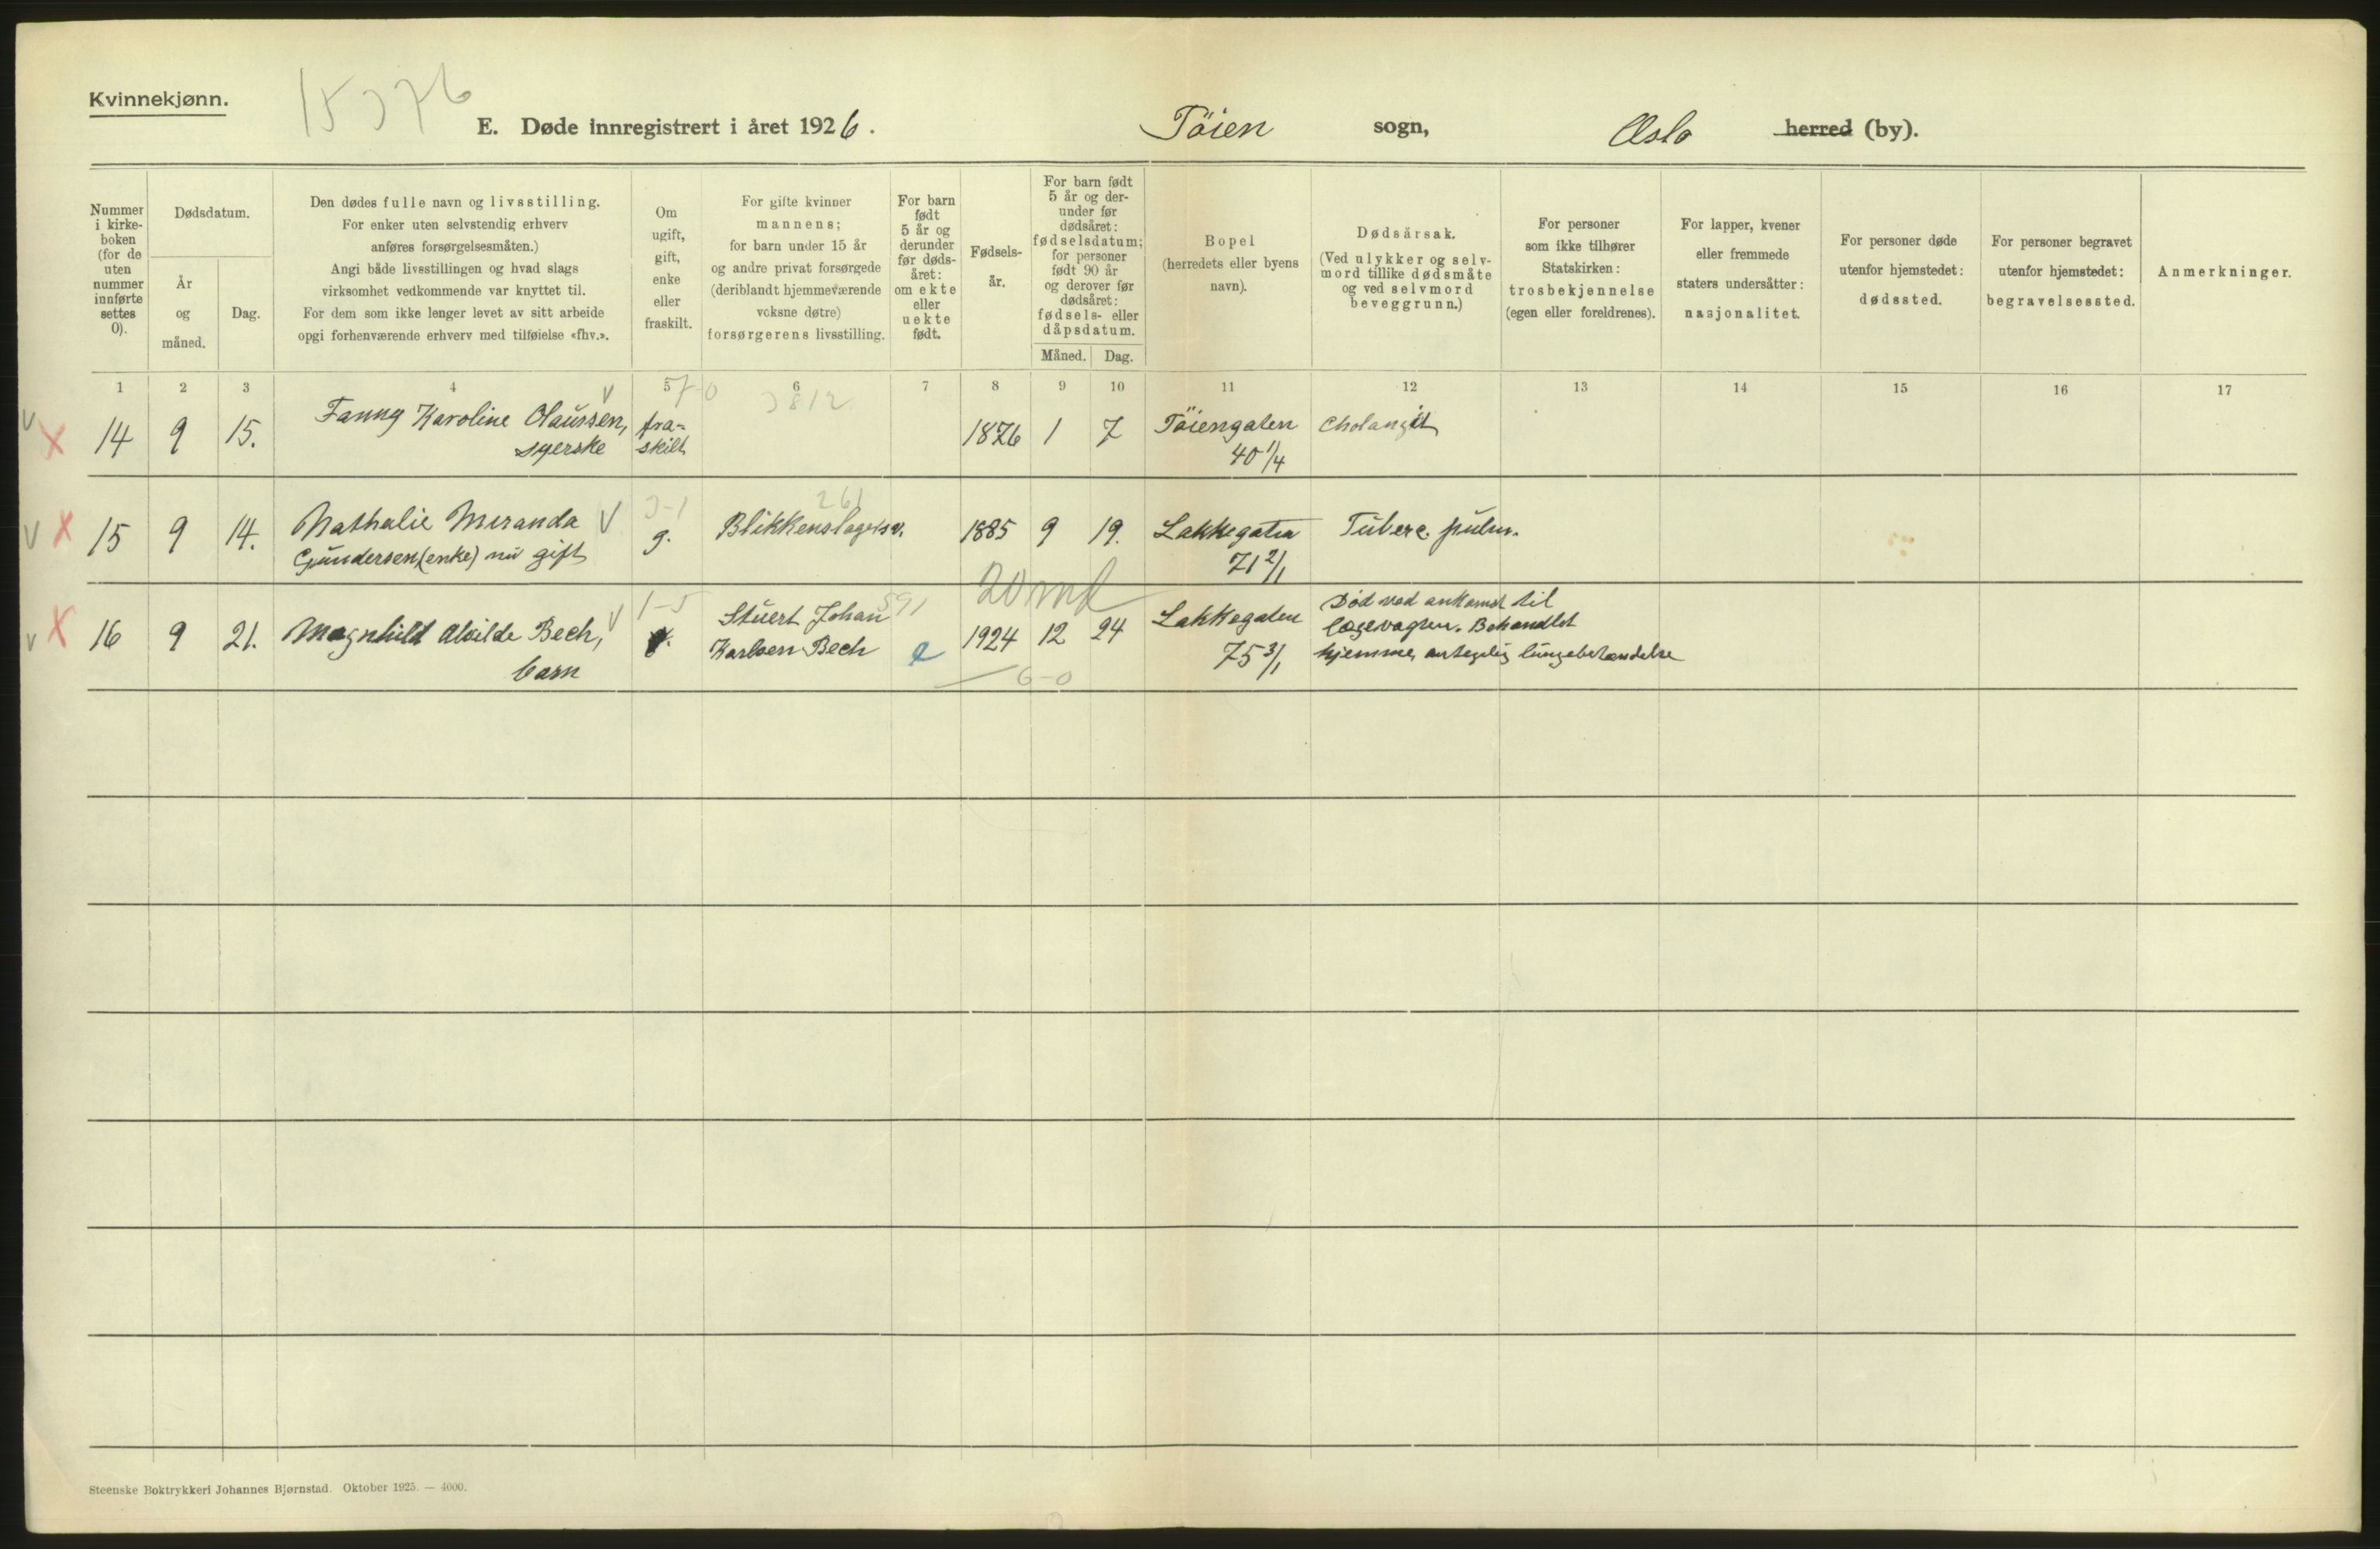 Kvinnekjønn.
E. Døde innregistrert i året 1926.
Töien sogn,
Oslo herred (by).
Nummer
i kirke-
boken
(for de
uten
nummer
innførte
settes
0).
Dødsdatum.
År
og
måned.
Dag.
Den dødes fulle navn og livsstilling.
For enker uten selvstendig erhverv
anføres forsørgelsesmåten.)
Angi både livsstillingen og hvad slags
virksomhet vedkommende var knyttet til.
For dem som ikke lenger levet av sitt arbeide
opgi forhenværende erhverv med tilføielse «fhv.».
Om
ugift,
gift,
enke
eller
fraskilt.
For gifte kvinner
mannens;
for barn under 15 år
og andre privat forsørgede
(deriblandt hjemmeværende
voksne døtre)
forsørgerens livsstilling.
For barn
født
5 år og
derunder
før døds-
året:
om ekte
eller
uekte
født.
Fødsels-
år.
For barn født
5 år og der-
under før
dødsåret:
fødselsdatum;
for personer
født 90 år
og derover før
dødsåret:
fødsels- eller
dåpsdatum.
Måned. Dag.
Bopel
(herredets eller byens
navn).
Dødsårsak.
(Ved ulykker og selv-
mord tillike dødsmåte
og ved selvmord
beveggrunn.)
For personer
som ikke tilhører
Statskirken:
trosbekjennelse
(egen eller foreldrenes).
For lapper, kvener
eller fremmede
staters undersåtter:
nasjonalitet.
For personer døde
utenfor hjemstedet:
dødssted.
For personer begravet
utenfor hjemstedet:
begravelsessted.
Anmerkninger.
1 2 3 4 5 6 7 8 9 10 11 12 13 14 15 16 17
14 9 15. Fanny Karoline Olaussen, fra- 1876 1 7 Töiengaten Cholangit
syerske skilt 40 1/4
15 9 14. Nathalie Miranda g. Blikkenslagersv. 1885 9 19. Lakkegata Tuberc. pulm.
Gundersen (enke) nu gift 71 2/1
20 md
16 9 21. Magnhild Alvilde Bech, Stuert Johan 1924 12 24 Lakkegaten Död ved ankomst til
barn Karlsen Bech e 75 3/1 lægevagten. Behandlet
hjemme, antagelig lungebetændelse
6-0
Steenske Boktrykkeri Johannes Bjørnstad. Oktober 1925. — 4000.